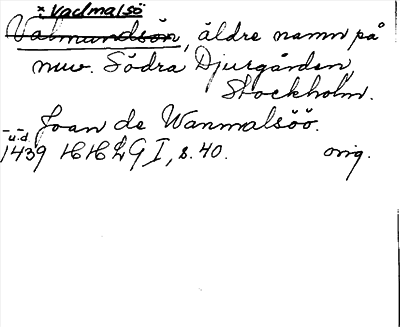 × Vadmalsö
Valmundsön, äldre namn på
nuv. Södra Djurgården,
Stockholm.
Joan de Wanmalsöö.
u.d.
1439 HHLG I, s. 40. orig.